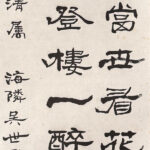 當世看花
登樓一醉
清屬
海隣吳世